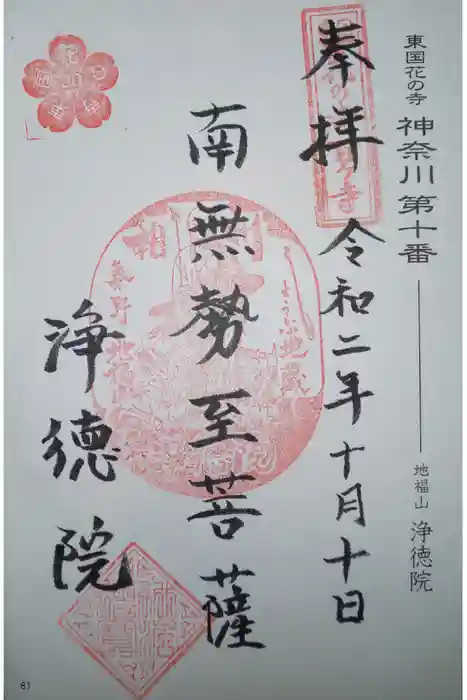 東国花の寺 神奈川第十番 地福山 浄徳院
奉拝 令和二年十月十日
南無勢至菩薩
浄徳院
東国花の寺
61